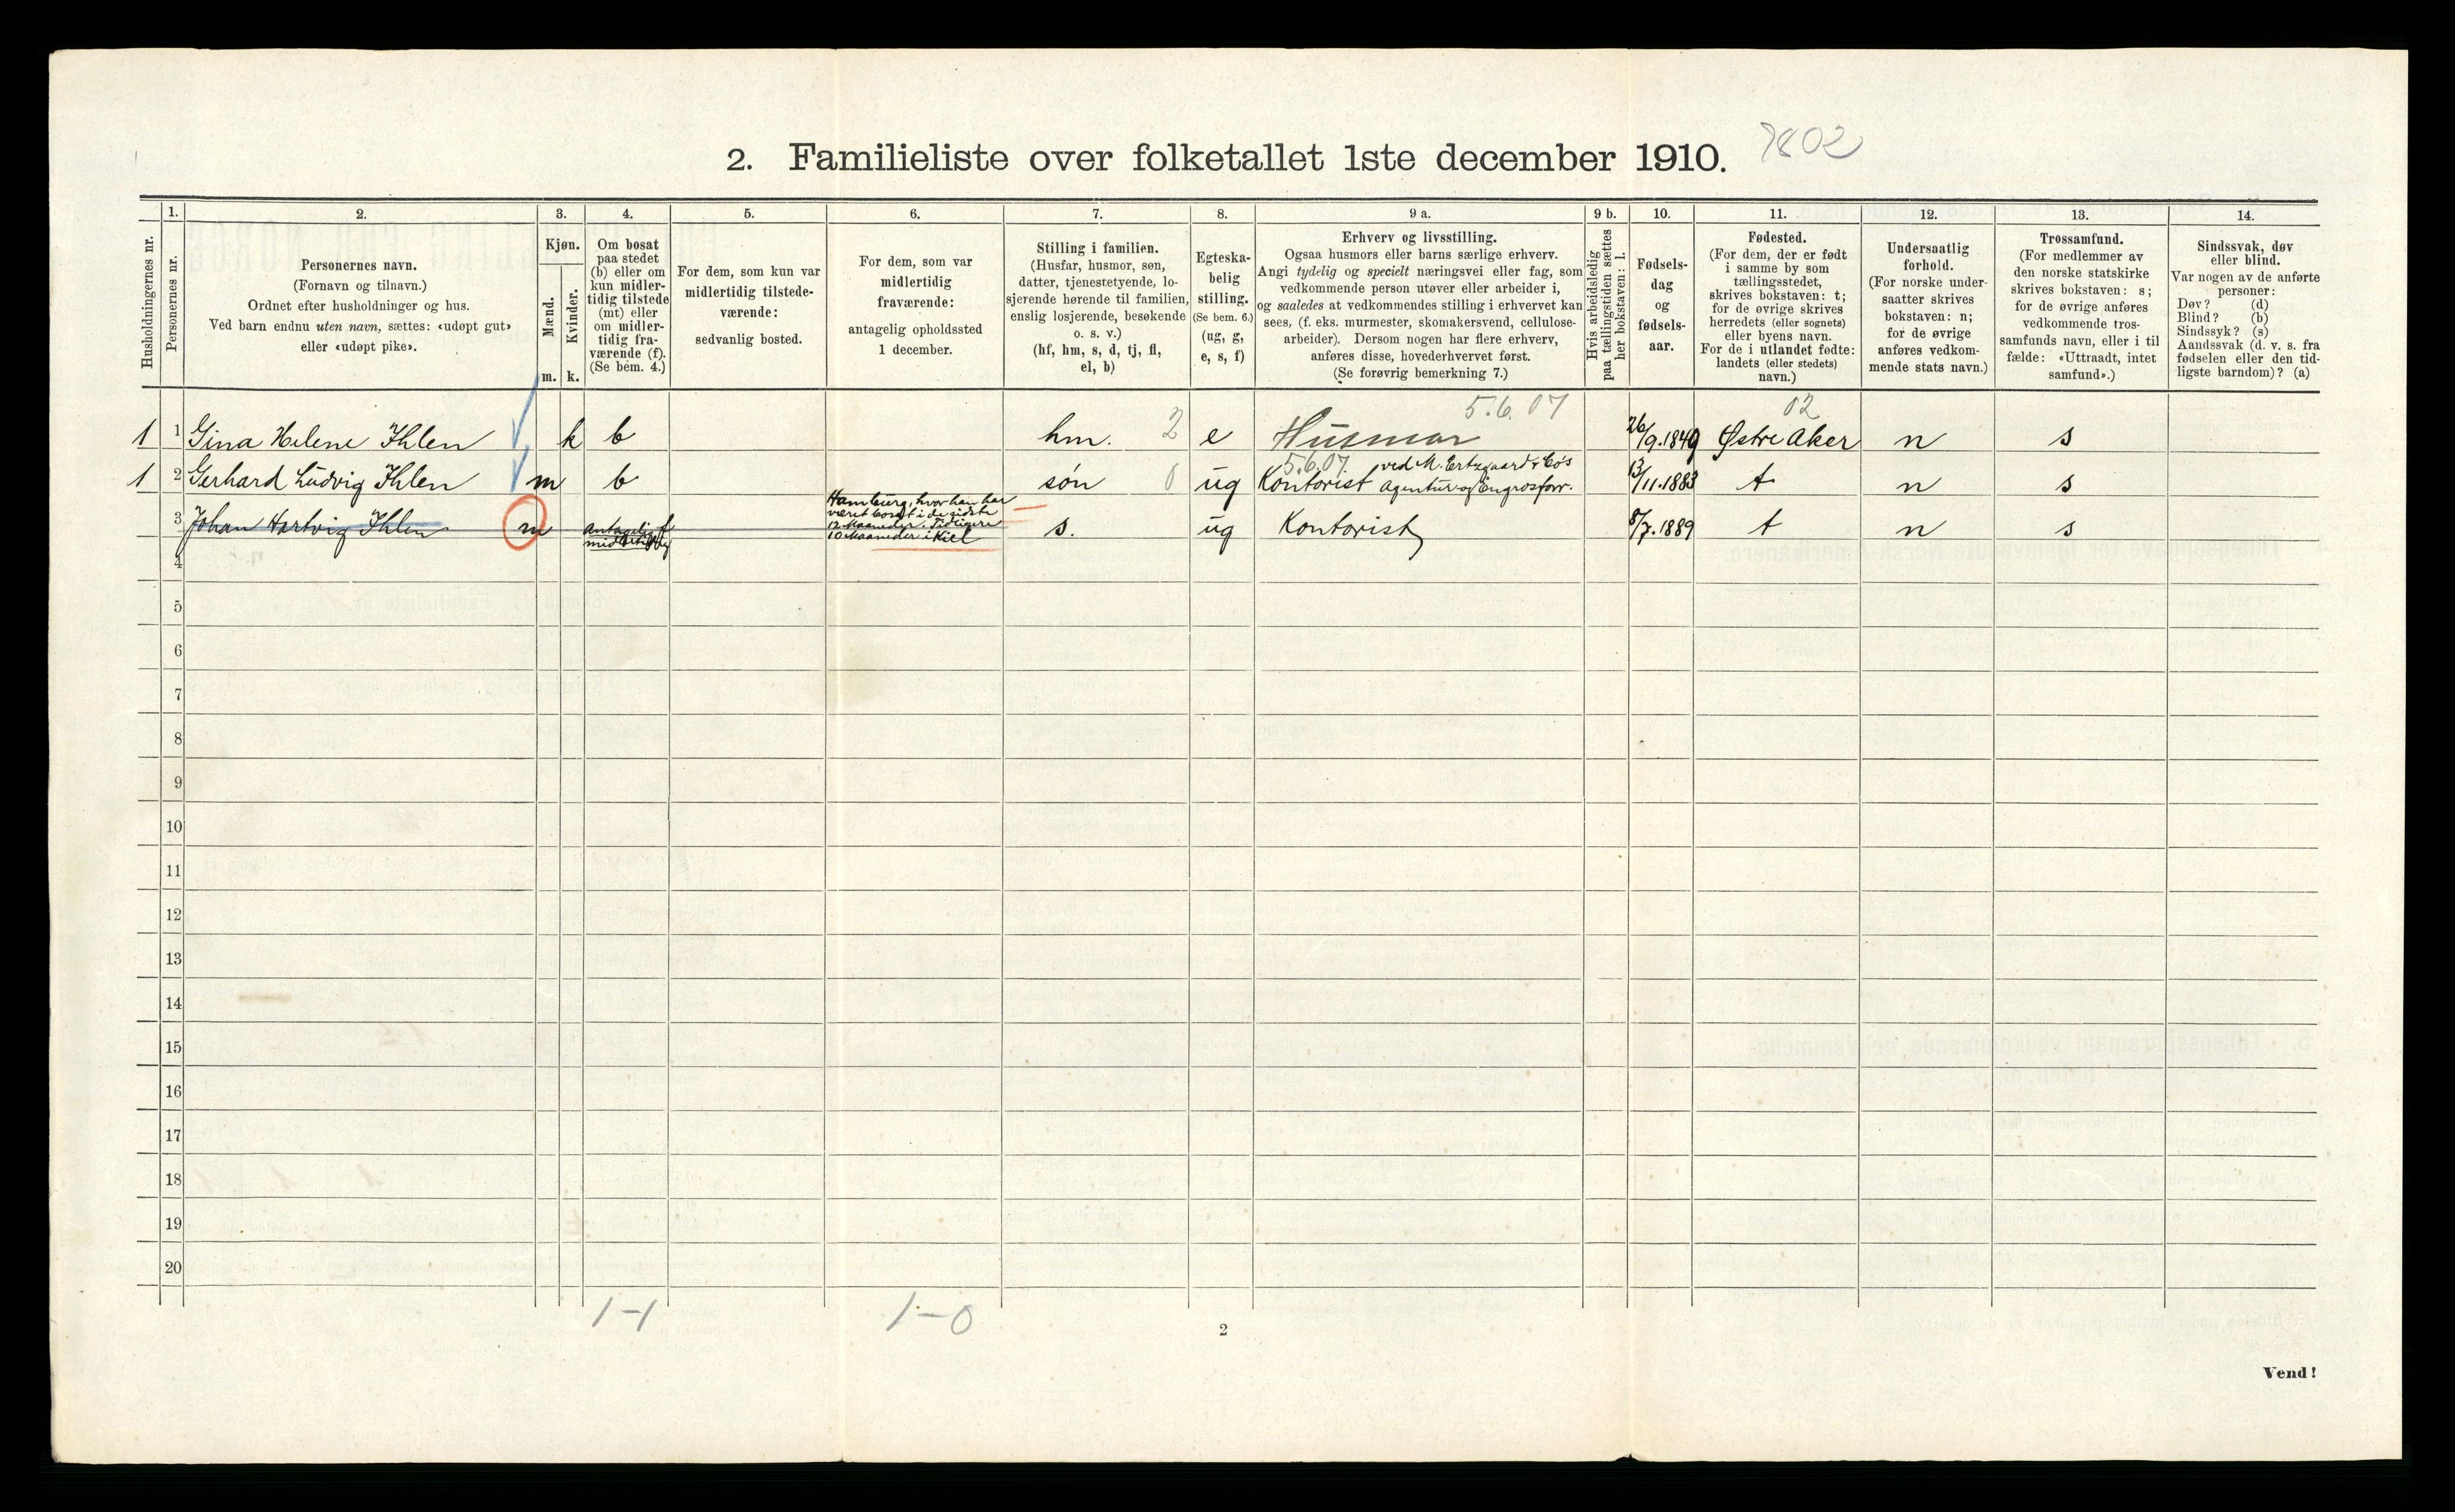 2. Familieliste over folketallet 1ste december 1910. 7802
Husholdningernes nr.
1.
Personernes nr.
2.
Personernes navn.
(Fornavn og tilnavn.)
Ordnet efter husholdninger og hus.
Ved barn endnu uten navn, sættes: «udøpt gut»
eller «udøpt pike».
3.
Kjøn.
Mænd.
Kvinder.
m. k.
4.
Om bosat
paa stedet
(b) eller om
kun midler-
tidig tilstede
(mt) eller
om midler-
tidig fra-
værende (f).
(Se bem. 4.)
5.
For dem, som kun var
midlertidig tilstede-
værende:
sedvanlig bosted.
6.
For dem, som var
midlertidig
fraværende:
antagelig opholdssted
1 december.
7.
Stilling i familien.
(Husfar, husmor, søn,
datter, tjenestetyende, lo-
sjerende hørende til familien,
enslig losjerende, besøkende
o. s. v.)
(hf, hm, s, d, tj, fl,
el, b)
8.
Egteska-
belig
stilling.
(Se bem. 6.)
(ug, g,
e, s, f)
9 a.
Erhverv og livsstilling.
Ogsaa husmors eller barns særlige erhverv.
Angi tydelig og specielt næringsvei eller fag, som
vedkommende person utøver eller arbeider i,
og saaledes at vedkommendes stilling i erhvervet kan
sees, (f. eks. murmester, skomakersvend, cellulose-
arbeider). Dersom nogen har flere erhverv,
anføres disse, hovederhvervet først.
(Se forøvrig bemerkning 7.)
9 b.
Hvis arbeidsledig
paa tællingstiden sættes
her bokstaven: l.
10.
Fødsels-
dag
og
fødsels-
aar.
11.
Fødested.
(For dem, der er født
i samme by som
tællingsstedet,
skrives bokstaven: t;
for de øvrige skrives
herredets (eller sognets)
eller byens navn.
For de i utlandet fødte:
landets (eller stedets)
navn.)
12.
Undersaatlig
forhold.
(For norske under-
saatter skrives
bokstaven: n;
for de øvrige
anføres vedkom-
mende stats navn.)
13.
Trossamfund.
(For medlemmer av
den norske statskirke
skrives bokstaven: s;
for de øvrige anføres
vedkommende tros-
samfunds navn, eller i til
fælde: «Uttraadt, intet
samfund».)
14.
Sindssvak, døv
eller blind.
Var nogen av de anførte
personer:
Døv? (d)
Blind? (b)
Sindssyk? (s)
Aandssvak (d. v. s. fra
fødselen eller den tid-
ligste barndom)? (a)
5.6.07 02
1 1 Gina Helene Ihlen k b hm. 2 e Husmor 26/9.1849 Østre Aker n s
5.6.07. ved M. Ertzgaard & Co's
1 2 Gerhard Ludvig Ihlen m b søn 0 ug Kontorist Agentur og Engrosforr. 13/11.1883 t n s
Hamburg, hvor han har
været bosat i de sidste
12 Maaneder. Tidligere
10 Maaneder i Kiel
3 Johan Hartvig Ihlen m antagelig f
midlertidig
s. ug Kontorist 8/7.1889 t n s
4
5
6
7
8
9
10
11
12
13
14
15
16
17
18
19
20
1-1 1-0
2
Vend!